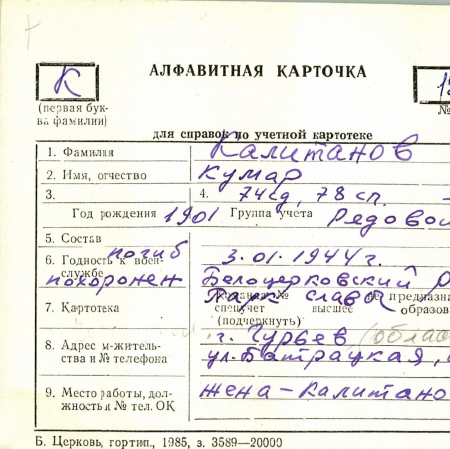 К
АЛФАВИТНАЯ КАРТОЧКА
(первая бук-
ва фамилии)
№
для справок по учетной картотеке
1. Фамилия Калитанов
2. Имя, отчество Кумар
3. 4. 74 сд, 78 сп.
Год рождения 1901 Группа учета Рядовой
5. Состав
погиб 3.01.1944 г.
6. Годность к воен-
службе
похоронен Белоцерковский
Парк Слава
7. Картотека команда № не предназна
спецучет высшее образов
(подчеркнуть)
8. Адрес м-жительс-
тва и № телефона
г. Гурьев (облас
ул. Батрацкая,
9. Место работы, дол-
жность и № тел. ОК
жена – Калитано
Б. Церковь, гортип., 1985, з. 3589—20000